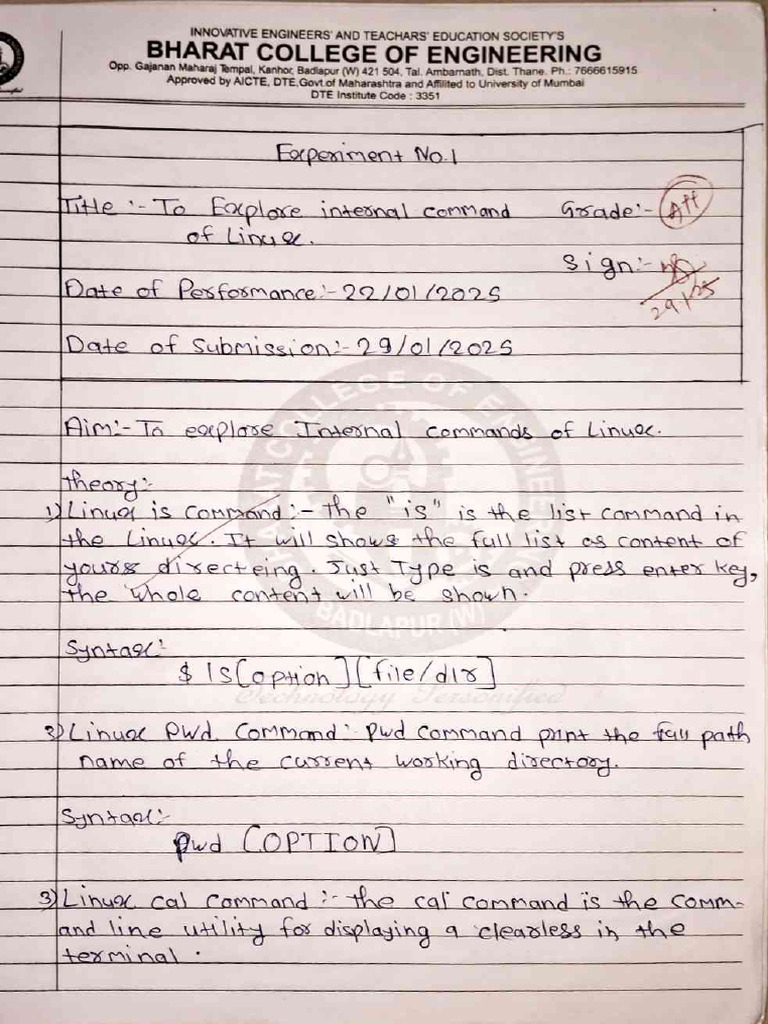 INNOVATIVE ENGINEERS' AND TEACHARS' EDUCATION SOCIETY'S
BHARAT COLLEGE OF ENGINEERING
Opp. Gajanan Maharaj Tempal, Kanhor, Badlapur (W) 421 504, Tal. Ambarnath, Dist. Thane. Ph.: 7666615915
Approved by AICTE, DTE,Govt.of Maharashtra and Affilited to University of Mumbai
DTE Institute Code : 3351
Experiment No.1
Title :- To Explore internal command Grade:- A++
of Linux.
Sign:-
29.1.25
Date of Performance:- 22/01/2025
Date of Submission:- 29/01/2025
Aim:- To explore Internal commands of Linux.
Theory:-
1) Linux is command :- The "is" is the list command in
the Linux. It will shows the full list as content of
yours directeing. Just Type is and press enter key,
the whole content will be shown.
Syntax:-
$ ls [option] [file/dir]
2) Linux Pwd Command: Pwd command print the full path
name of the current working directory.
Syntax:-
Pwd [OPTION]
3) Linux cal command :- the cal command is the comm-
and line utility for displaying a clearless in the
terminal.
BHARAT COLLEGE OF ENGINEERING
BADLAPUR (W)
Technology Personified